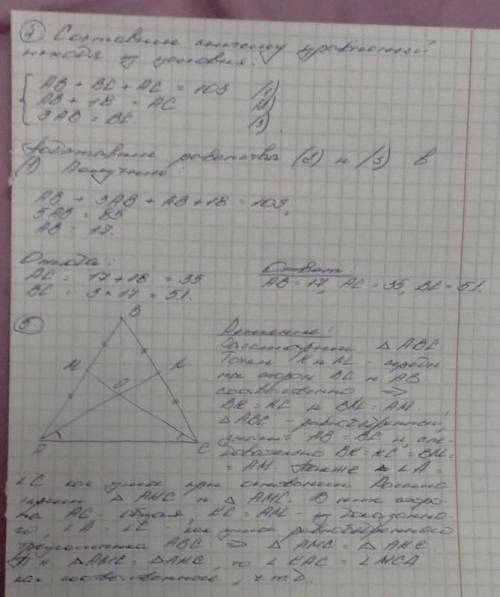 ④ Составим систему уравнений
исходя из условия:
AB + BC + AC = 103 (1)
AB + 18 = AC (2)
3AB = BC (3)
Подставим равенства (2) и (3) в
(1) Получим:
AB + 3AB + AB + 18 = 103,
5AB = 85
AB = 17.
Отсюда:
AC = 17 + 18 = 35
BC = 3 · 17 = 51.
Ответ:
AB = 17, AC = 35, BC = 51.
⑤
B
M K
O
A C
Решение:
Рассмотрим △ ABC
Точки K и M - середи
ны сторон BC и AB
соответственно ⇒
BK = KC и BM = AM,
△ABC - равнобедренный,
значит AB = BC и, сле-
довательно BK = KC = BM =
= AM. Также ∠A =
∠C как углы при основании. Рассмо
трим △ AKC и △ AMC. В них сторо
на AC - общая, KC = AM - из доказанно
го, ∠A = ∠C как углы равнобедренного
треугольника ABC ⇒ △ AMC = △ AKC
Т.к △AMC = △AKC, то ∠KAC = ∠MCA
как соответственные, ч.т.д.